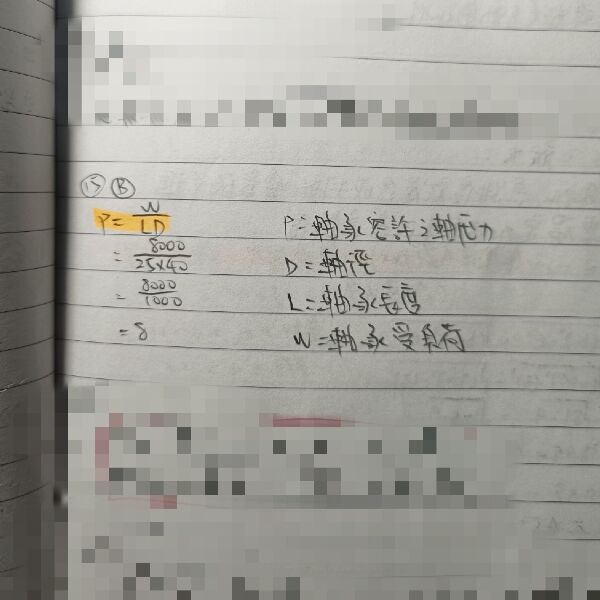 ⑮ Ⓑ
P = W/LD
P=軸承容許之軸壓力
= 8000/25×40
D=軸徑
= 8000/1000
L=軸承長度
= 8
W=軸承受負荷